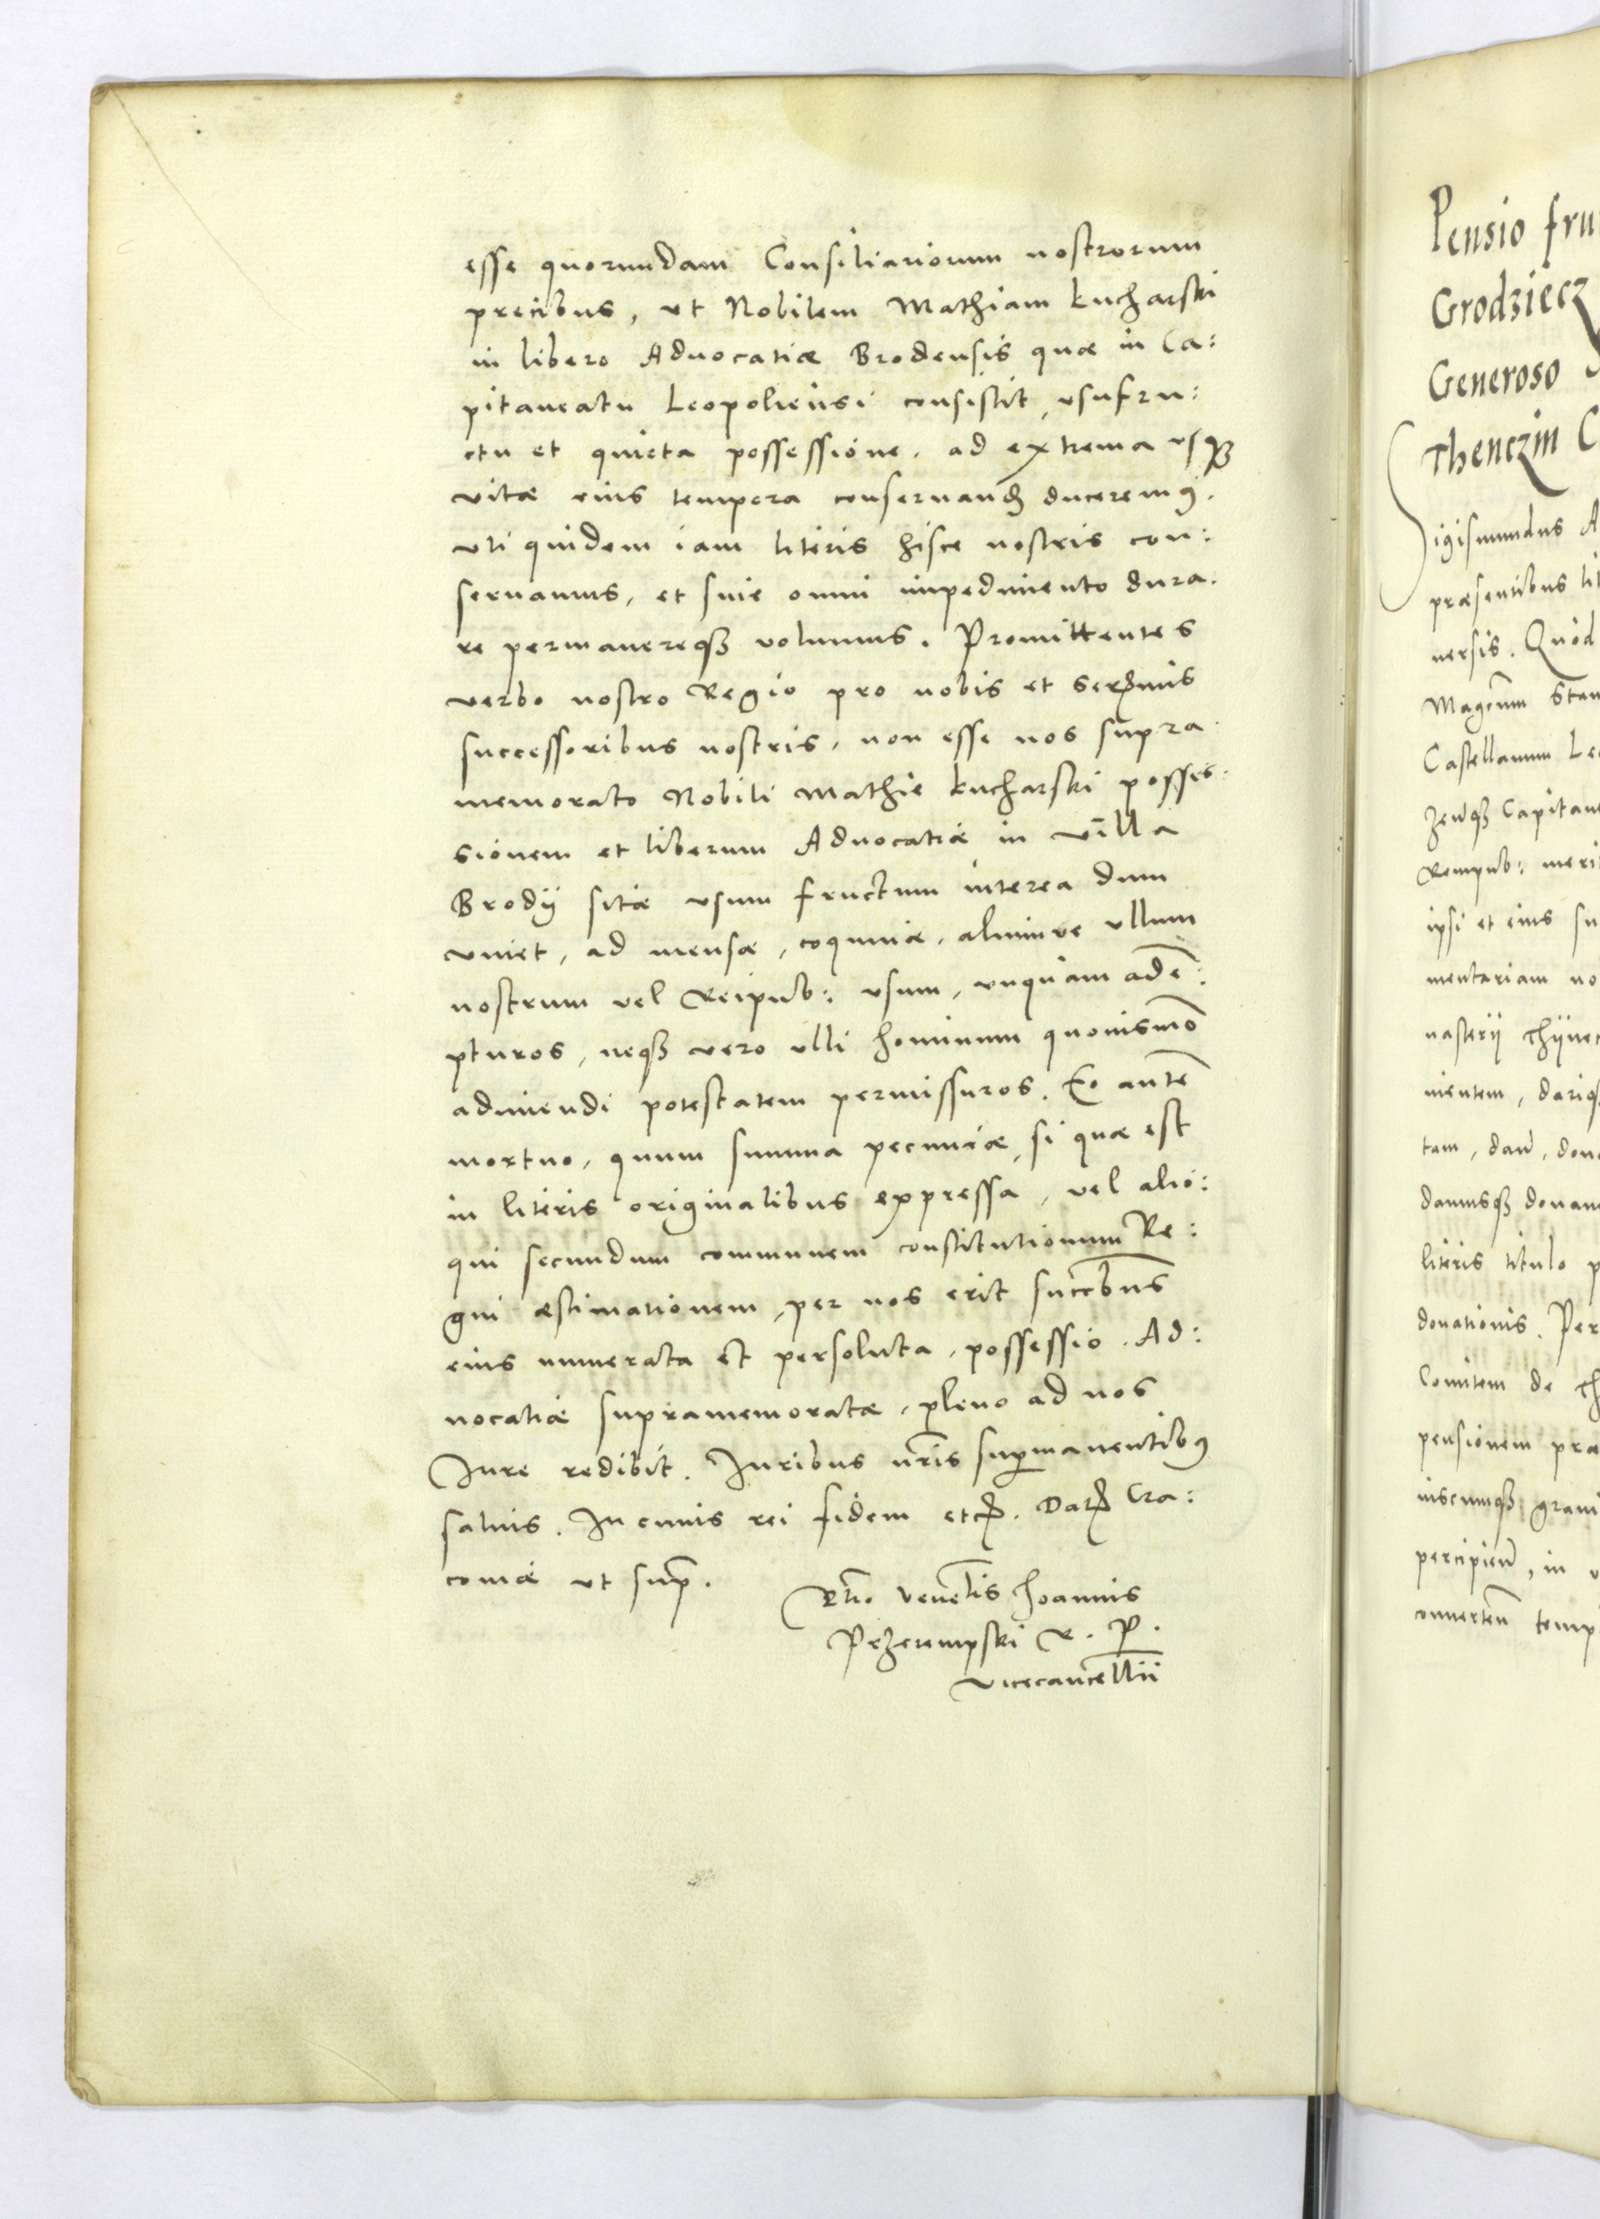 esse quorundam Consiliariorum nostrorum
precibus, ut Nobilem Mathiam Kucharski
in libero Aduocatiæ Brodensis quæ in Ca:
pitaneatu Leopoliensi consistit, usufru:
ctu et quieta possessione, ad extrema usqꝫ
vitæ eius tempora conseruandꝫ duceremꝰ.
Uti quidem iam literis hisce nostris con:
seruamus, et sine omni impedimento dura:
re permanereqꝫ volumus. Promittentes
verbo nostro Regio pro nobis et Serꝫmis
successoribus nostris, non esse nos supra
memorato Nobili Mathie Kucharski posses:
sionem et liberum Aduocatiæ in villa
Brodÿ sitæ usum fructum interea dum
viuet, ad mensæ, coquinæ, aliumue ullum
nostrum vel Reipub: usum, unquam adē:
pturos, neqꝫ vero ulli hominum quouismō
adimendi potestatem permissuros. Eo autē
mortuo, quum summa pecuniæ, si quæ est
in literis originalibus expressa, vel alio:
qui secundum communem constitutionum Re:
gni æstimationem, per nos erit succribus
eius numerata et persoluta, possessio. Ad:
uocatiæ supramemoratæ, pleno ad nos
Iure redibit. Iuribus nr̄is suꝑmanentibꝰ
saluis. In cuius rei fidem etcꝫ. Datꝫ Cra:
couiæ ut sup̄.
Rtio Venelis Joannis
Przerempski R. P.
Vicecancellii
Pensio fru
Grodziecz
Generoso
Thenczin C
Sigismundus A
præsentibus lit
uersis. Quod
Magcum Stan
Castellanum Le
zenqꝫ Capitan
Rempub: meri
ipsi et eius su
mentariam no
nasterÿ Thÿnec
nientem, dariqꝫ
tam, dañ, don
damusqꝫ donam
literis titulo p
donationis. Per
Comitem de Th
pensionem præ
uiscumqꝫ graui
percipieñ, in u
conuerteñ temp